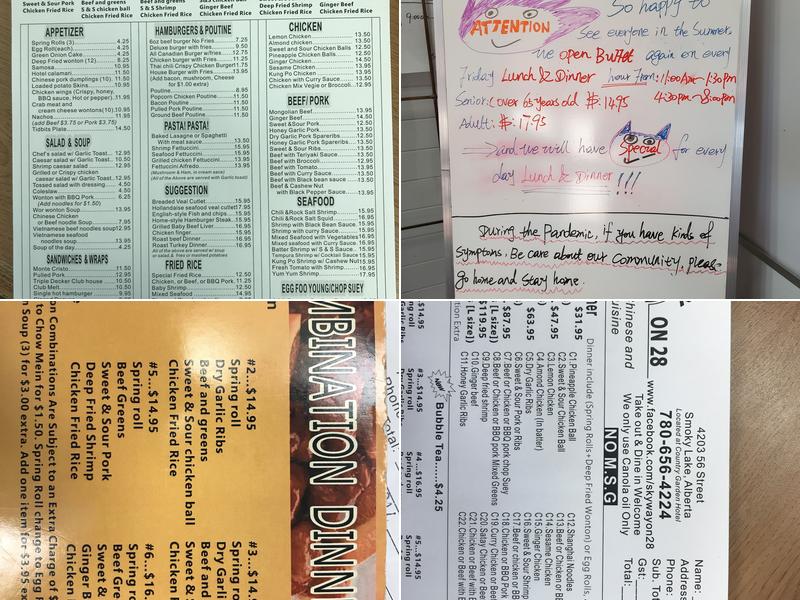 Sweet & Sour Pork
Chicken Fried Rice
Beef and greens
S & S chicken ball
Chicken Fried Rice
Beef and greens
S & S chicken ball
Chicken Fried Rice
Ginger Beef
Chicken Fried Rice
Deep Fried Shrimp
Chicken Fried Rice
Ginger Beef
Chicken Fried Rice
APPETIZER
Spring Rolls (3) 4.25
Egg Roll(each) 2.25
Green Onion Cake 4.25
Deep Fried wonton (12) 6.25
Samosa 10.95
Hotel calamari 11.50
Chinese pork dumplings (10) 11.50
Loaded potato Skins 10.95
Chicken wings (Crispy, honey,
BBQ sauce, Hot or pepper) 11.95
Crab meat and
cream cheese wontons(10) 10.95
Nachos 11.95
(add Beef $3.75 or Pork $3.75)
Tidbits Plate 14.50
SALAD & SOUP
Chef's salad w/ Garlic Toast 12.95
Caesar salad w/ Garlic Toast 10.50
Shrimp caesar salad 12.95
Grilled or Crispy chicken
caesar salad w/ Garlic Toast 12.95
Tossed salad with dressing 4.50
Coleslaw 4.50
Wonton with BBQ Pork 6.25
(Add noodles for $1.50)
Wor wonton Soup 13.95
Chinese Chicken
or Beef noodle Soup 7.95
Vietnamese beef noodles soup 12.95
Vietnamese seafood
noodles soup 13.95
Soup of the day 4.25
SANDWICHES & WRAPS
Monte Cristo 11.50
Pulled Pork 12.95
Triple Decker Club house 10.50
Club Melt 10.50
Single hot hamburger 9.95
HAMBURGERS & POUTINE
6oz beef burger No Fries 7.25
Deluxe burger with fries 9.50
All Canadian Burger w/Fries 12.75
Chicken burger with Fries 11.25
Thai chili Crispy Chicken Burger 11.75
House Burger with Fries 13.95
(Add bacon, mushroom, Cheese
for $1.00 extra)
Poutine 8.95
Popcorn Chicken Poutine 11.50
Bacon Poutine 11.50
Pulled Pork Poutine 11.50
Ground Beef Poutine 11.50
PASTA! PASTA!
Baked Lasagne or Spaghetti
With meat sauce 13.50
Shrimp Fettuccini 15.95
Seafood Fettuccini 15.95
Grilled chicken Fettuccini 13.95
Fettuccini Alfredo 13.95
(Mushroom & Ham, in cream sace)
(All of the Above are served with Garlic toast)
SUGGESTION
Breaded Veal Cutlet 15.95
Hollandaise seafood veal cutlet 17.95
English-style Fish and chips 15.95
Home-style Hamburger Steak 15.95
Grilled Baby Beef Liver 16.95
Chicken finger 15.95
Roast beef Dinner 16.95
Roast Turkey Dinner 16.95
(All of the above are served w/ soup
or salad, & fries or mashed potatoes)
FRIED RICE
Special Fried Rice 12.50
Chicken, or Beef, or BBQ Pork 11.25
Baby Shrimp 12.50
Mixed Seafood 14.95
CHICKEN
Lemon Chicken 13.50
Almond chicken 13.50
Sweet and Sour Chicken Balls 12.50
Pineapple Chicken Balls 12.50
Ginger Chicken 14.50
Sesame Chicken 13.95
Kung Po Chicken 13.95
Chicken with Curry Sauce 13.50
Chicken Mix Vegie or Broccoli 12.95
BEEF/ PORK
Mongolian Beef 13.95
Ginger Beef 14.50
Sweet &Sour Pork 12.50
Honey Garlic Pork 13.50
Dry Garlic Pork Spareribs 12.50
Honey Garlic Pork Spareribs 13.50
Sweet & Sour Ribs 13.50
Beef with Teriyaki Sauce 13.50
Beef with Broccoli 12.95
Beef with Tomato 13.95
Beef with Curry Sauce 13.50
Beef with Black bean sauce 13.50
Beef & Cashew Nut
with Black Pepper Sauce 13.95
SEAFOOD
Chili &Rock Salt Shrimp 15.95
Chili &Rock Salt Squid 16.95
Shrimp with Black Bean Sauce 15.95
Shrimp with curry Sauce 15.95
Mixed Seafood with Vegetables 16.95
Mixed seafood with Curry Sauce 16.95
Batter Shrimp w/ S & S Sauce 15.95
Tempura Shrimp w/ Cocktail Sauce 15.95
Kung Po Shrimp w/ Cashew Nuts 15.95
Fresh Tomato with Shrimp 16.95
Yum Yum Shrimp 17.95
EGG FOO YOUNG/CHOP SUEY
So happy to
ATTENTION
See everyone in the Summer.
we open Buffet again on every
Friday Lunch & Dinner hour from: 11:00Am~1:30pm
4:30pm~8:00pm
Senior: (over 65 years old $: 14.95
Adult: $: 17.95
and we will have Special for every
day Lunch & Dinner !!!
During the Pandemic, if you have kinds of
symptoms. Be care about our community, please
go home and stay home.
MBINATION DINN
#2...$14.95
Spring roll
Dry Garlic Ribs
Beef and greens
Sweet & Sour chicken ball
Chicken Fried Rice
#5...$14.95
Spring roll
Beef Greens
Sweet & Sour Pork
Deep Fried Shrimp
Chicken Fried Rice
#3...$14.
Spring ro
Dry Garli
Beef and
Sweet &
Chicken
#6...$16.
Spring ro
Beef Gre
Sweet &
Ginger B
Chicken
on Combinations Are Subject to an Extra Charge of $
to Chow Mein for $1.50, Spring Roll change to Egg
n Soup (3) for $3.00 extra. Add one item for $3.95 ex
4203 56 Street
Smoky Lake, Alberta
Located at Country Garden Hotel
780-656-4224
www.facebook.com/skywayon28
Take out & Dine in Welcome
We only use Canola oil Only
ON 28
hinese and
uisine
NO M.S.G
Name:
Address
Phone:
Sub. To
Gst:
Total:
Dinner include (Spring Rolls • Deep Fried Wonton) or Egg Rolls,
$31.95
$47.95
$63.95
$87.95
[L size])
$119.95
[L size])
C1. Pineapple Chicken Ball
C2. Sweet & Sour Chicken Ball
C3. Lemon Chicken
C4. Almond Chicken (In batter)
C5. Dry Garlic Ribs
C6. Sweet & Sour Pork or Ribs
C7. Beef or Chicken or BBQ pork chop Suey
C8. Beef or Chicken or BBQ pork Mixed Greens
C9. Deep fried shrimp
C10. Ginger beef
C11. Honey Garlic Ribs
C12. Shanghai Noodles
C13. Beef or Chicken
C14. Sesame Chicken
C15. Ginger Chicken
C16. Sweet & Sour Shrimp
C17. Beef or chicken or BB
C18. Chicken or BBQ Pork
C19. Curry Chicken or Bee
C20. Satay Chicken or Bee
C21. Chicken or Beef with
C22. Chicken or Beef with
Bubble Tea.....$4.25
#3...$14.95
Spring roll
#4...$16.95
Spring roll
#5...$14.95
Spring roll